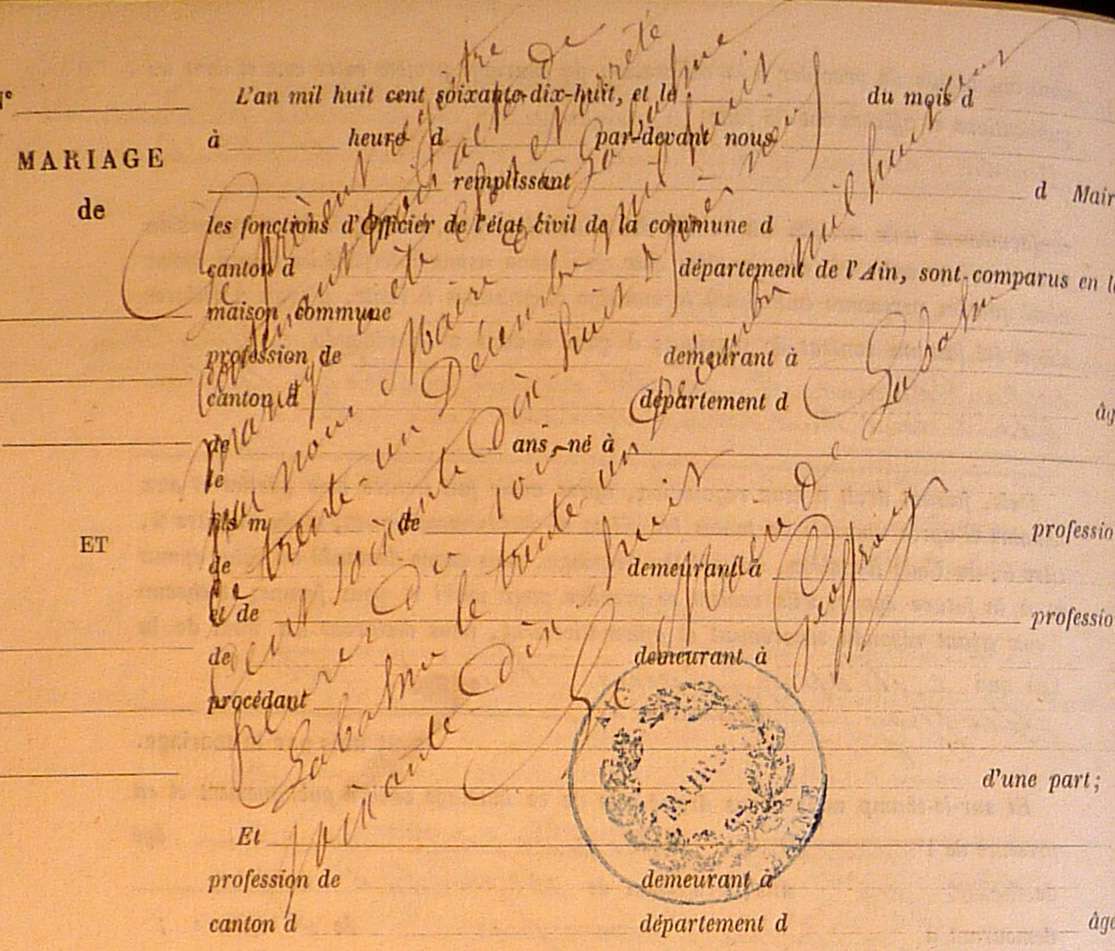 N°
MARIAGE
de
ET
L'an mil huit cent soixante-dix-huit, et le du mois d
à heure d par-devant nous
remplissant d Mair
les fonctions d'Officier de l'état civil de la commune d
canton d département de l'Ain, sont comparus en l
maison commune
profession de demeurant à
canton d département d âg
de ans, né à
le
fils m de professio
de demeurant à
et de professio
de demeurant à
procédant
d'une part;
Et
profession de demeurant à
canton d département d âgé
Le présent registre
contenant trois actes de
mariage a été clos et arrêté
par nous Maire de Labalme
le trente-un Décembre mil huit
cent soixante Dix huit
heures du soir
Labalme le trente un Décembre mil huit cent
soixante Dix huit
Le Maire de Labalme
Geoffray
MAIRIE
BALME
AIN